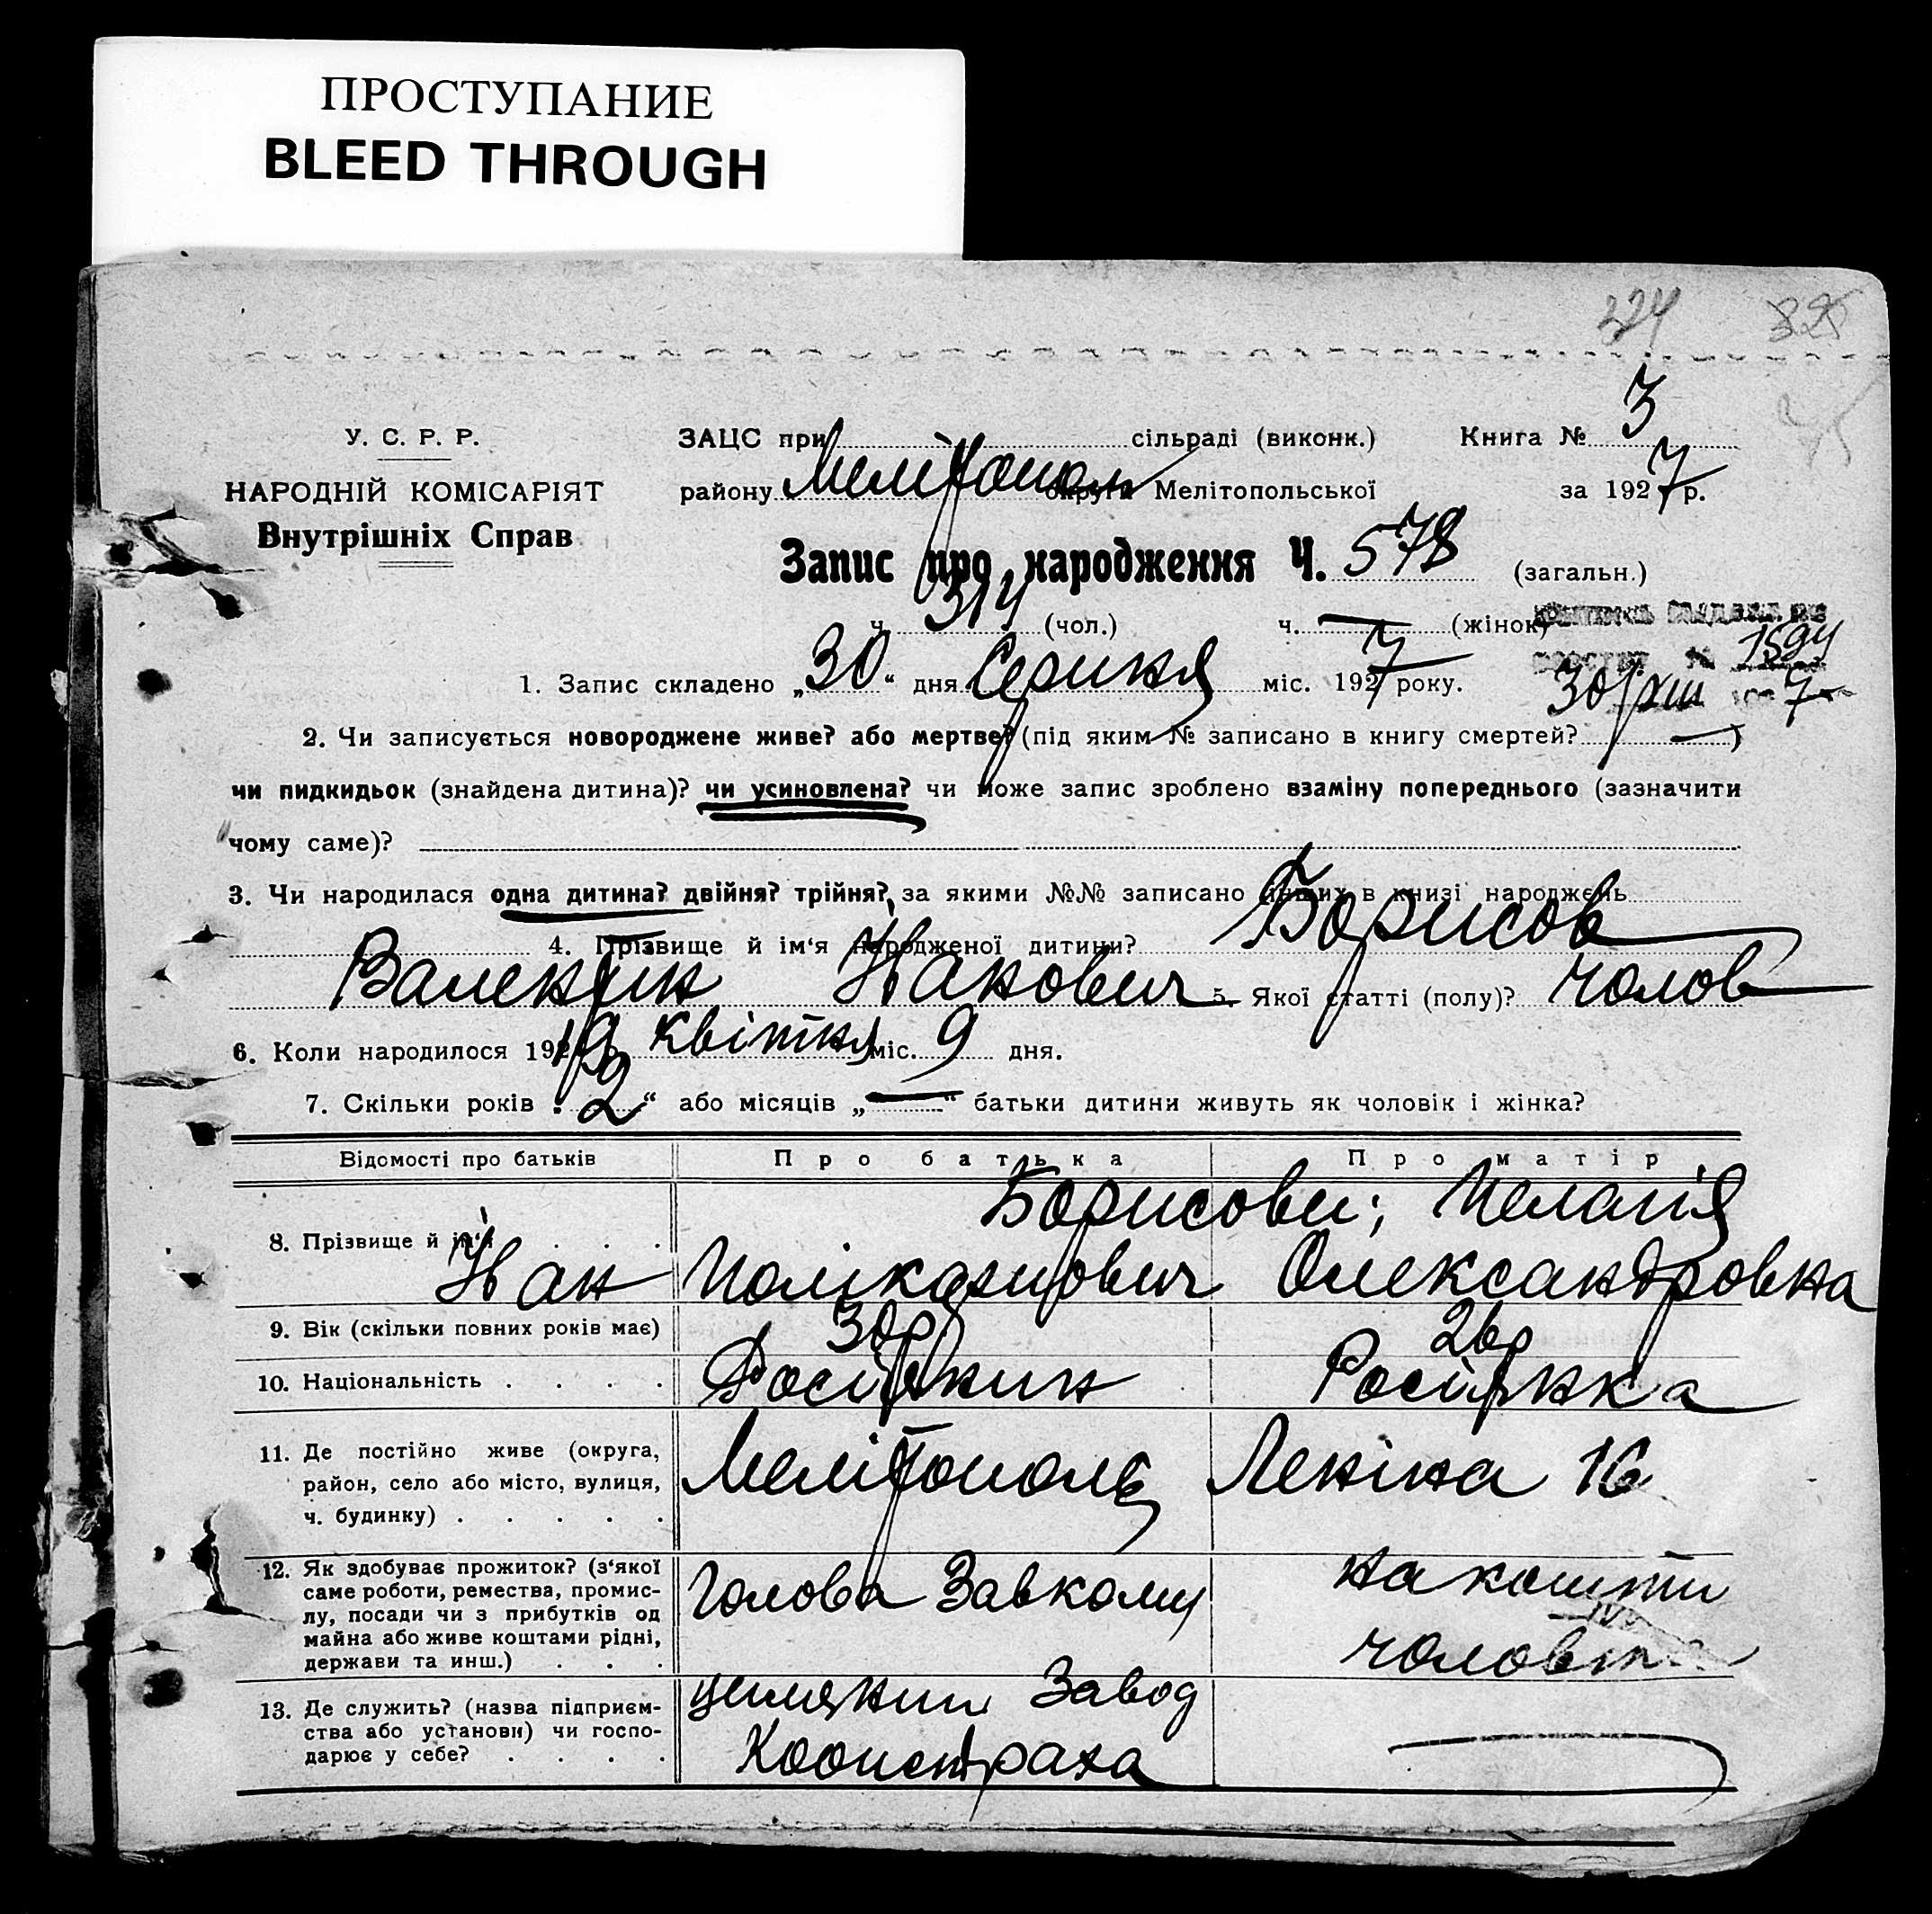 ПРОСТУПАНИЕ
BLEED THROUGH
324 325
У. С. Р. Р.
НАРОДНІЙ КОМІСАРІЯТ
Внутрішніх Справ
ЗАЦС при сільраді (виконк.) Книга № 3
району Мелітополь округи Мелітопольської за 1927 р.
Запис про народження Ч. 578 (загальн.)
ч. 314 (чол.) ч. — (жінок)
1594
1. Запис складено „30“ дня Серпня міс. 1927 року.
30/VIII 7
2. Чи записується новороджене живе? або мертве? (під яким № записано в книгу смертей? —)
чи пидкидьок (знайдена дитина)? чи усиновлена? чи може запис зроблено взаміну попереднього (зазначити
чому саме)?
3. Чи народилася одна дитина? двійня? трійня? за якими №№ записано інших в книзі народжень
4. Прізвище й ім‘я народженої дитини? Борисов
Валентин Іванович 5. Якої статті (полу)? чолов
6. Коли народилося 192 р. квітня міс. 9 дня.
7. Скільки років „2“ або місяців „—“ батьки дитини живуть як чоловік і жінка?
Відомості про батьків Про батька Про матір
8. Прізвище й ім‘я Борисови; Пелагія
Іван Полікарпович Олександровна
9. Вік (скільки повних років має) 30р 26р
10. Національність Росіянин Росіянка
11. Де постійно живе (округа,
район, село або місто, вулиця,
ч. будинку)
Мелітополь Леніна 16
12. Як здобуває прожиток? (з‘якої
саме роботи, ремества, промис-
лу, посади чи з прибутків од
майна або живе коштами рідні,
держави та инш.)
Голова Завкому на кошти
чоловіка
13. Де служить? (назва підприєм-
ства або установи) чи госпо-
дарює у себе?
Завод